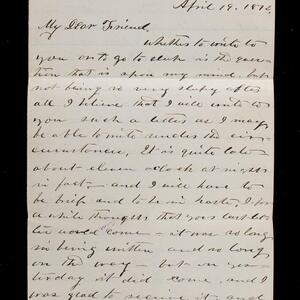 April 19. 187
My Dear Friend,
Whether to write to
you or to go to is the ques-
tion that is upon my mind, but
not being so very sleepy after
all I believe that I will write to
you such a letter as I may
be able to write under the cir-
cumstances. It is quite late
about eleven oclock at night
in fact, and I will have to
be brief and to be in haste, I
a while thought that your last let-
ter would come - it was so long
in being written and so long
on the way - but on yes-
terday it did come, and I
was glad to receive it